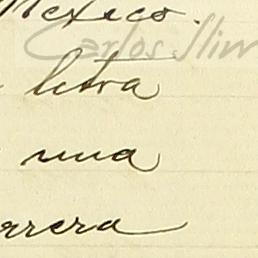 Mexico.
Carlos Slim
letra
una
rrera